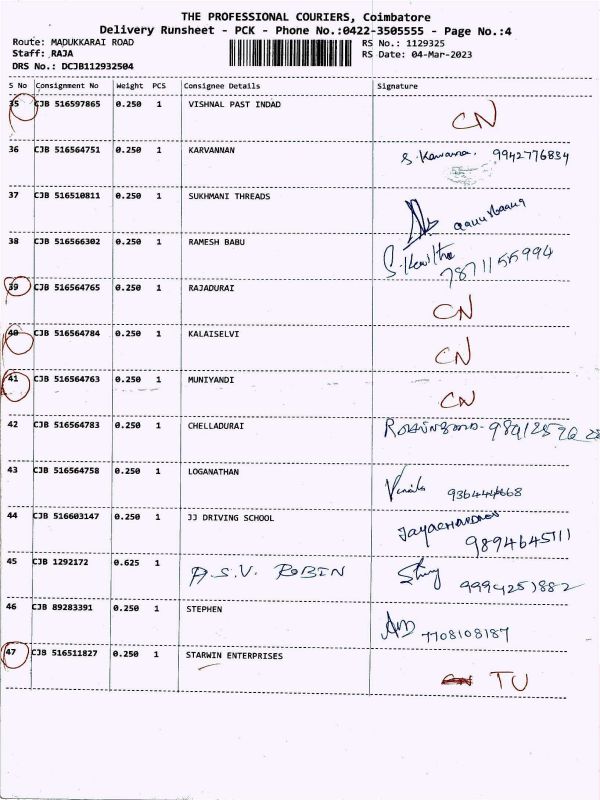 THE PROFESSIONAL COURIERS, Coimbatore
Delivery Runsheet - PCK - Phone No.:0422-3505555 - Page No.:4
Route: MADUKKARAI ROAD RS No.: 1129325
Staff: RAJA RS Date: 04-Mar-2023
DRS No.: DCJB112932504
S No Consignment No Weight PCS Consignee Details Signature
35 CJB 516597865 0.250 1 VISHNAL PAST INDAD CN
36 CJB 516564751 0.250 1 KARVANNAN 9942776834
37 CJB 516510811 0.250 1 SUKHMANI THREADS
38 CJB 516566302 0.250 1 RAMESH BABU S. Kavitha
7871155994
39 CJB 516564765 0.250 1 RAJADURAI CN
40 CJB 516564784 0.250 1 KALAISELVI CN
41 CJB 516564763 0.250 1 MUNIYANDI CN
42 CJB 516564783 0.250 1 CHELLADURAI
43 CJB 516564758 0.250 1 LOGANATHAN
44 CJB 516603147 0.250 1 JJ DRIVING SCHOOL
9894645111
45 CJB 1292172 0.625 1 A.S.V. ROBIN 9994251882
46 CJB 89283391 0.250 1 STEPHEN 7708108187
47 CJB 516511827 0.250 1 STARWIN ENTERPRISES CN TU